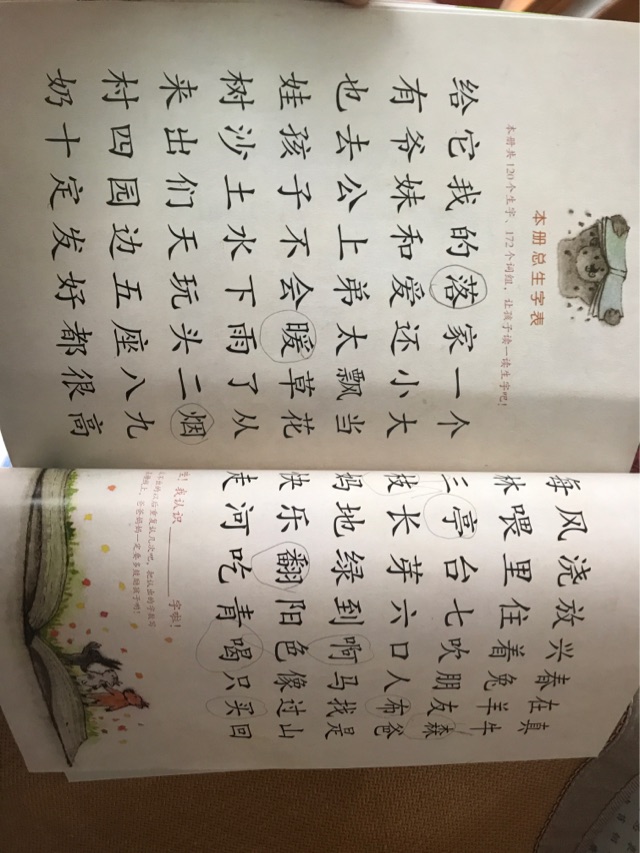 本册总生字表
本册共120个生字、172个词组，让孩子读一读生字吧！
给它我的落家一个
有爷妹和爱还小大
也去公上弟太飘当
娃孩子不会暖草花
树沙土水下雨了从
来出们天玩头二烟
村四园边五座八九
奶十定发好都很高
每风浇放兴春在真
林喂里住着兔羊牛
三亭台七吹朋友森
枝长芽六口人布爸
妈地绿到啊马找是
快乐翻阳色像过山
走河吃青喝只买回
我认识________字啦！
以后重复读几次吧，把认出的字数写
横线上，爸爸妈妈一定要多鼓励孩子哟！